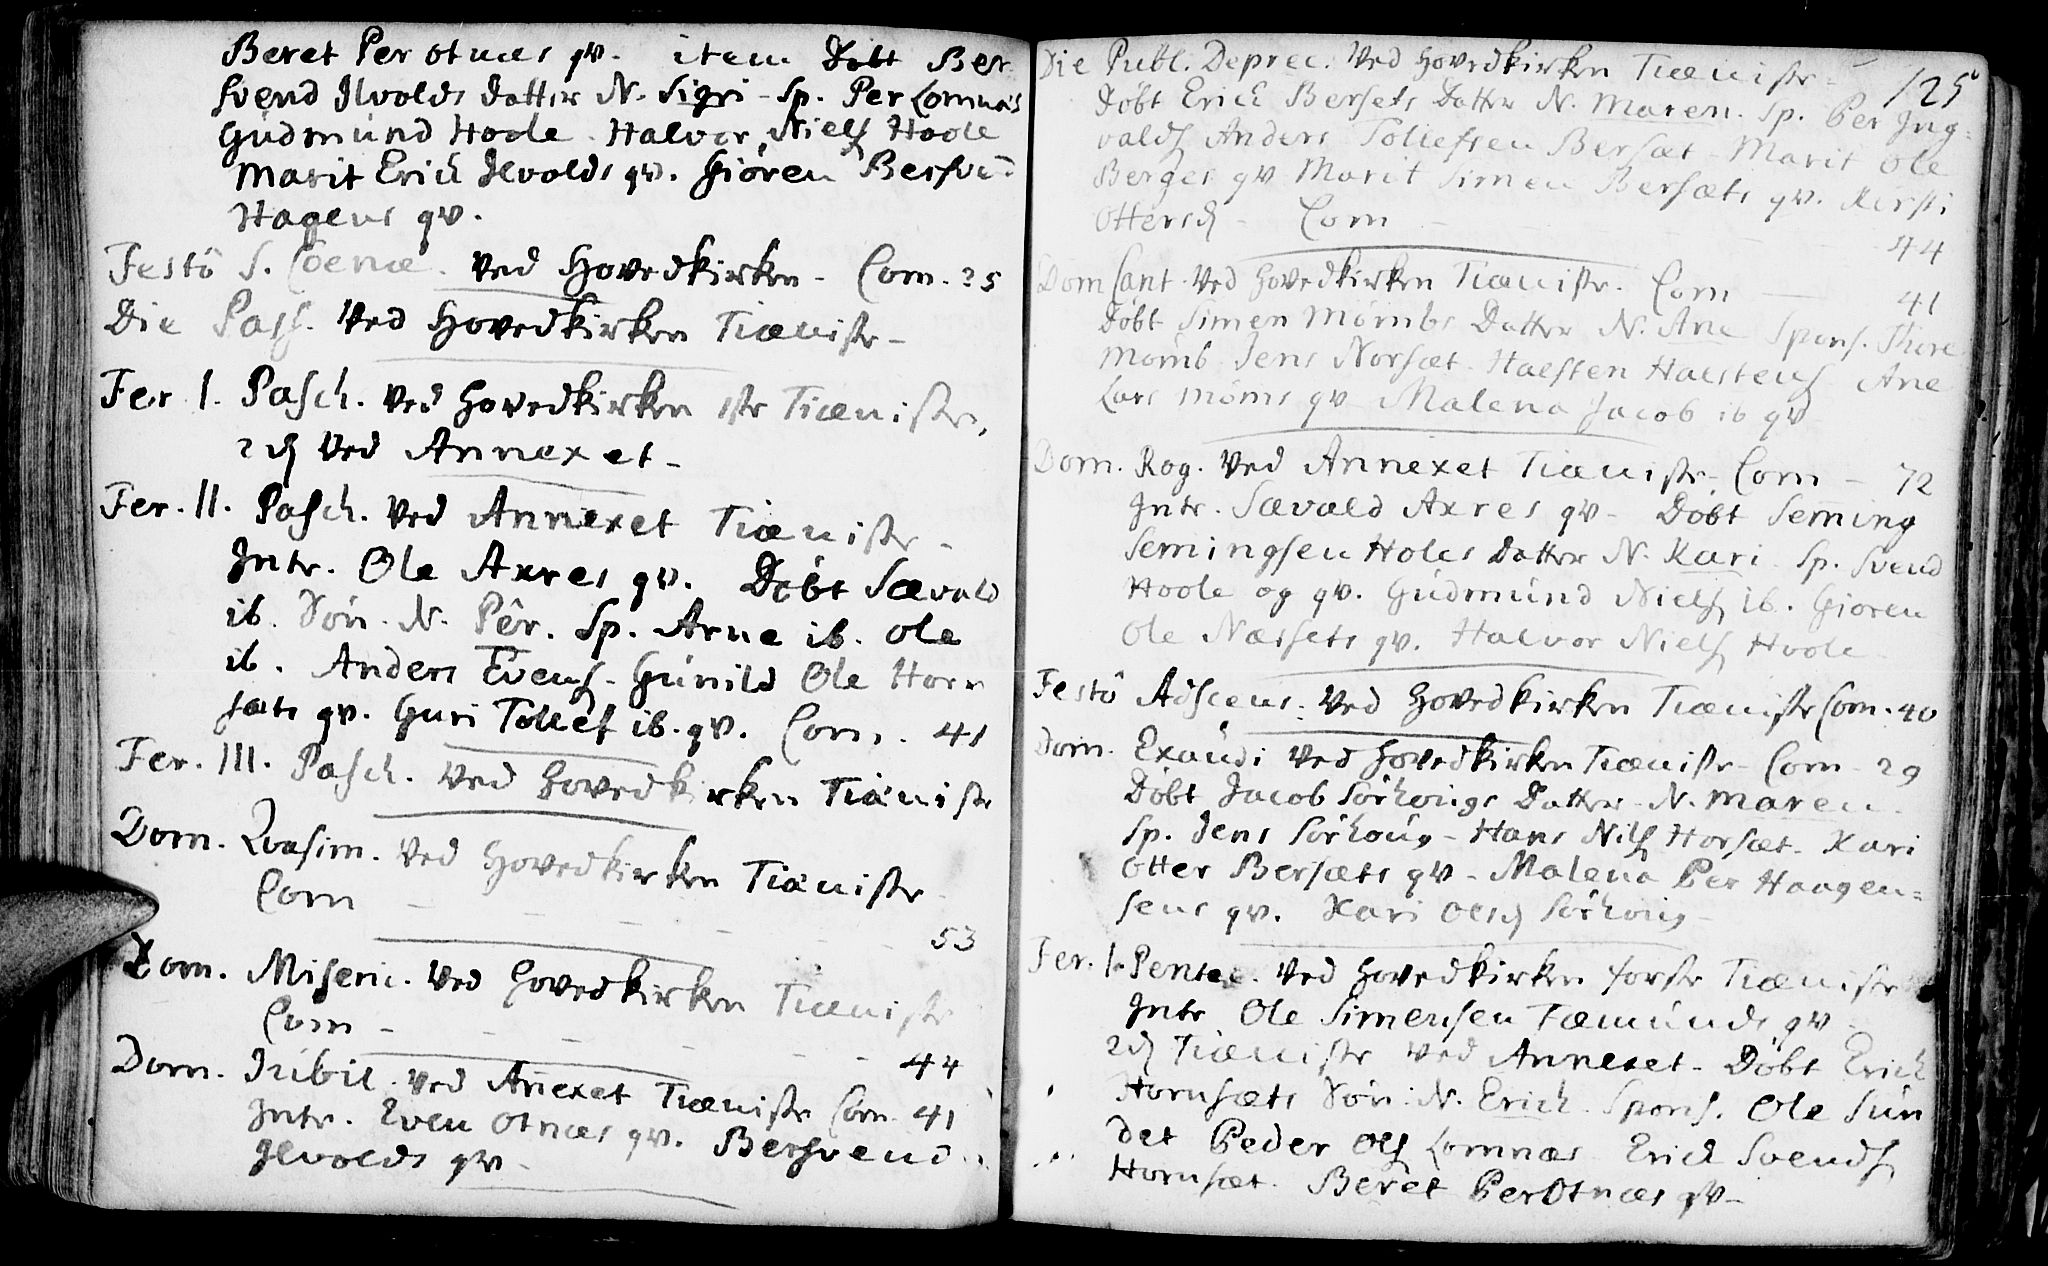 Beret Per otnæs qv. item Døbt Ber-
svend Ilvolds datter N. Sigri - Sp. Per Lomnæs
Gúdmúnd Hoole. Halvor, Niels Hoole
Marit Erich Ilvolds qv. Giøren Bersven
Hagens qv.
Festô S. Coenæ. Ved Hovedkirken - Com. 25
Die Pass. Ved Hovedkirken Tiæniste -
Fer. I. Pasch. Ved Hovedkirken 1ste Tiæniste,
2d Ved Annexet -
Fer. II. Pasch. Ved Annexet Tiæniste -
Intr. Ole Axres qv. Døbt Sævald
ib. Søn. N. Pêr. Sp. Arne ib. Ole
ib. Anders Evens - Gúnild Ole Horn
sæts qv. Guri Tollef ib. qv. Com. 41
Fer. III. Pasch. Ved Hovedkirken Tiæniste
Dom. Qvasim. Ved Hovedkirken Tiæniste -
Com - - - - - 53
Dom. Miseric. Ved Hovedkirken Tiæniste
Com - - - - - 44
Dom. Júbil. Ved Añexet Tiæniste Com. 41
Intr. Even Otnæs qv. Bersvend
Ilvolds qv -
125
Die Publ. Deprec. Ved Hovedkirken Tiæniste -
Døbt Erich Bersets Datter N. Maren. Sp. Per Ing-
valds Anders Tollefsen Bersæt - Marit Ole
Berges qv Marit Simen Bersæts qv. Kirsti
Ottersd - Com - 44
Dom Cant. Ved Hovedkirken Tiæniste. Com - 41
Døbt Simen Mømbs Datter N. Ane Spons. Thore
Mømb Jens Norsæt. Halsten Halstens Ane
Lars Mømbs qv Malena Jacob ib qv
Dom. Rog. Ved Annexet Tiæniste. Com - 72
Intr. Sævald Axres qv - Døbt Seming
Semingsen Holes Datter N. Kari. Sp. Svend
Hoole og qv. Gúdmúnd Niels ib. Gioren
Ole Næssets qv. Halvor Niels Hoole -
Festô Adscens. Ved Hovedkirken Tiæniste Com. 40
Dom. Exaúdi Ved Hovedkirken Tiæniste - Com - 29
Døbt Jacob Sørhoúgs Datter - N. Maren
Sp. Jens Sørhoúg - Hans Nils Horsæt. Kari
Otter Bersæts qv - Malena Per Haagen-
sens qv. Kari Olsd Sørhoúg -
Fer. I. Pentec. Ved Hovedkirken første Tiæniste
Intr Ole Simensen Fæmúnds qv -
2d Tiæniste Ved Annexet - Døbt Erich
Hornsæts Søn: N. Erich. Spons. Ole Sún
det Peder Ols Lomnæs Erich Svends
Hornsæt. Beret Per Otnæs qv -